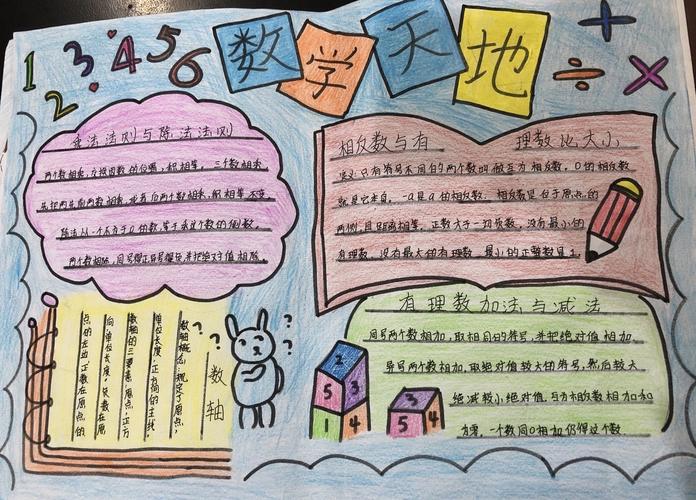 1 2 3 4 5 6
数学天地
+ ÷ ×
乘法法则与除法法则
两个数相乘,交换因数的位置,积相等。三个数相乘
先把前两个数相乘,或者后两个数相乘,积相等不变
除法以一个不为于0的数,等于乘这个数的倒数。
两个数相除,同号得正异号得负,并把绝对值相除。
相反数与有理数比大小
定义:只有符号不同的两个数叫做互为相反数。0的相反数
就是它本身。-a是a的相反数。相反数是位于原点的
两侧,且距离相等。正数大于一切负数,没有最小的
有理数,没有最大的有理数。最小的正整数是1。
数轴
数轴概念:规定了原点,
单位长度,正方向的直线,
数轴的三要素:原点,正方
向,单位长度,负数在原
点的左边,正数在原点的
? ? ? ?
有理数加法与减法
同号两个数相加,取相同的符号,并把绝对值相加
异号两个数相加,取绝对值较大的符号,然后较大
绝减较小绝对值,互为相反数相加和
为零。一个数同0相加仍得这个数
2
5 3
1 4
3
5 4